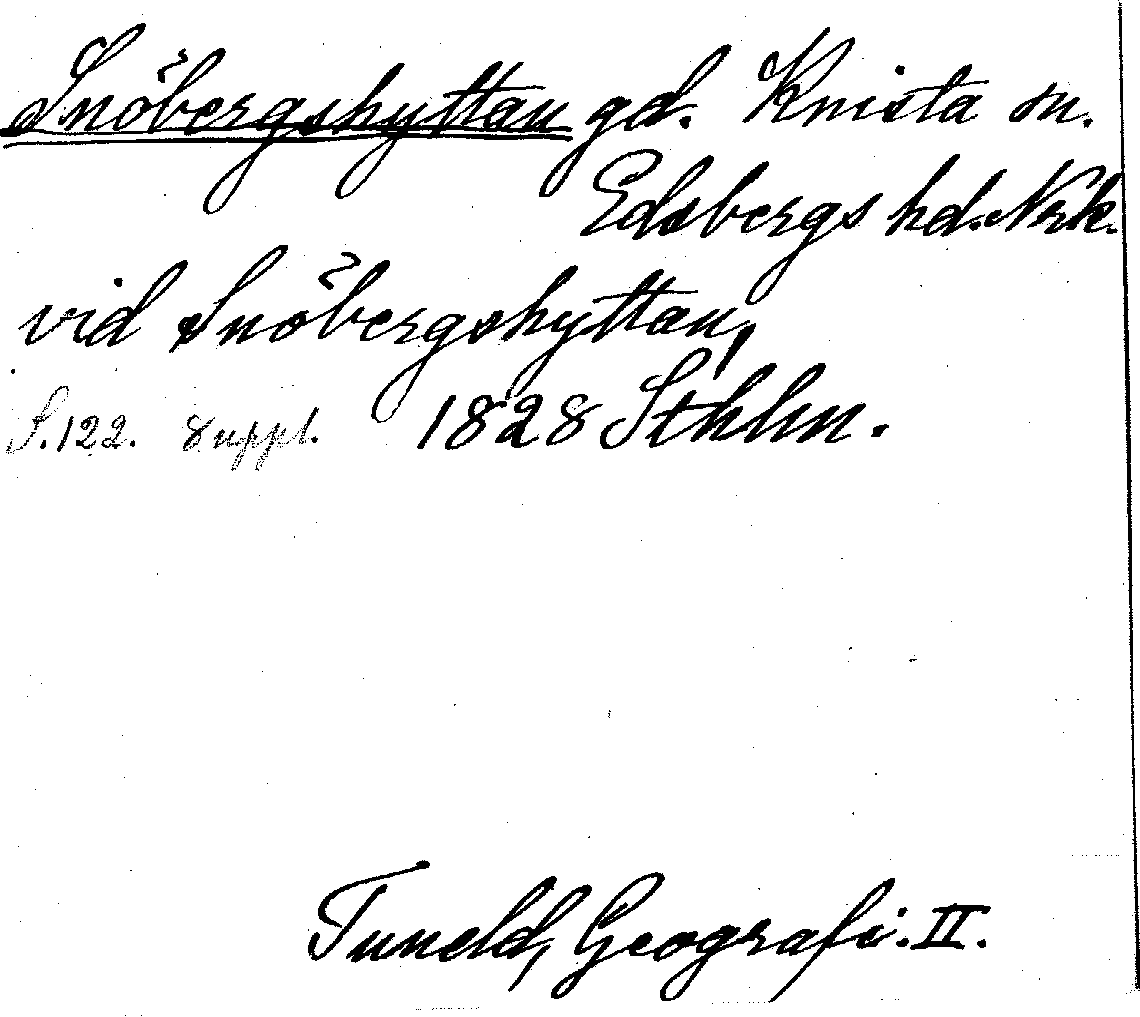 Snöbergshyttan gd. Knista sn.
Edsbergs hd. Nrk.
vid Snöbergshyttan,
S.122. Suppl. 1828 Sthlm.
Tuneld, Geografi. II.